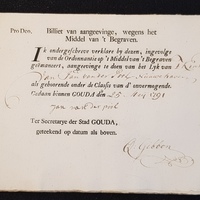 Pro Deo.
Billiet van aangeevinge, wegens het
Middel van 't Begraven.
Ik ondergeschreve verklare by deezen, ingevolge
van de Ordonnantie op 't Middel van 't Begraven
geëmaneert, aangeevinge te doen van het Lyk van
Jan
als gehoorende onder de Classis van d' onvermogende.
Gedaan binnen GOUDA den 25 1791
Jan van der
Ter Secretarye der Stad GOUDA,
geteekend op datum als boven.